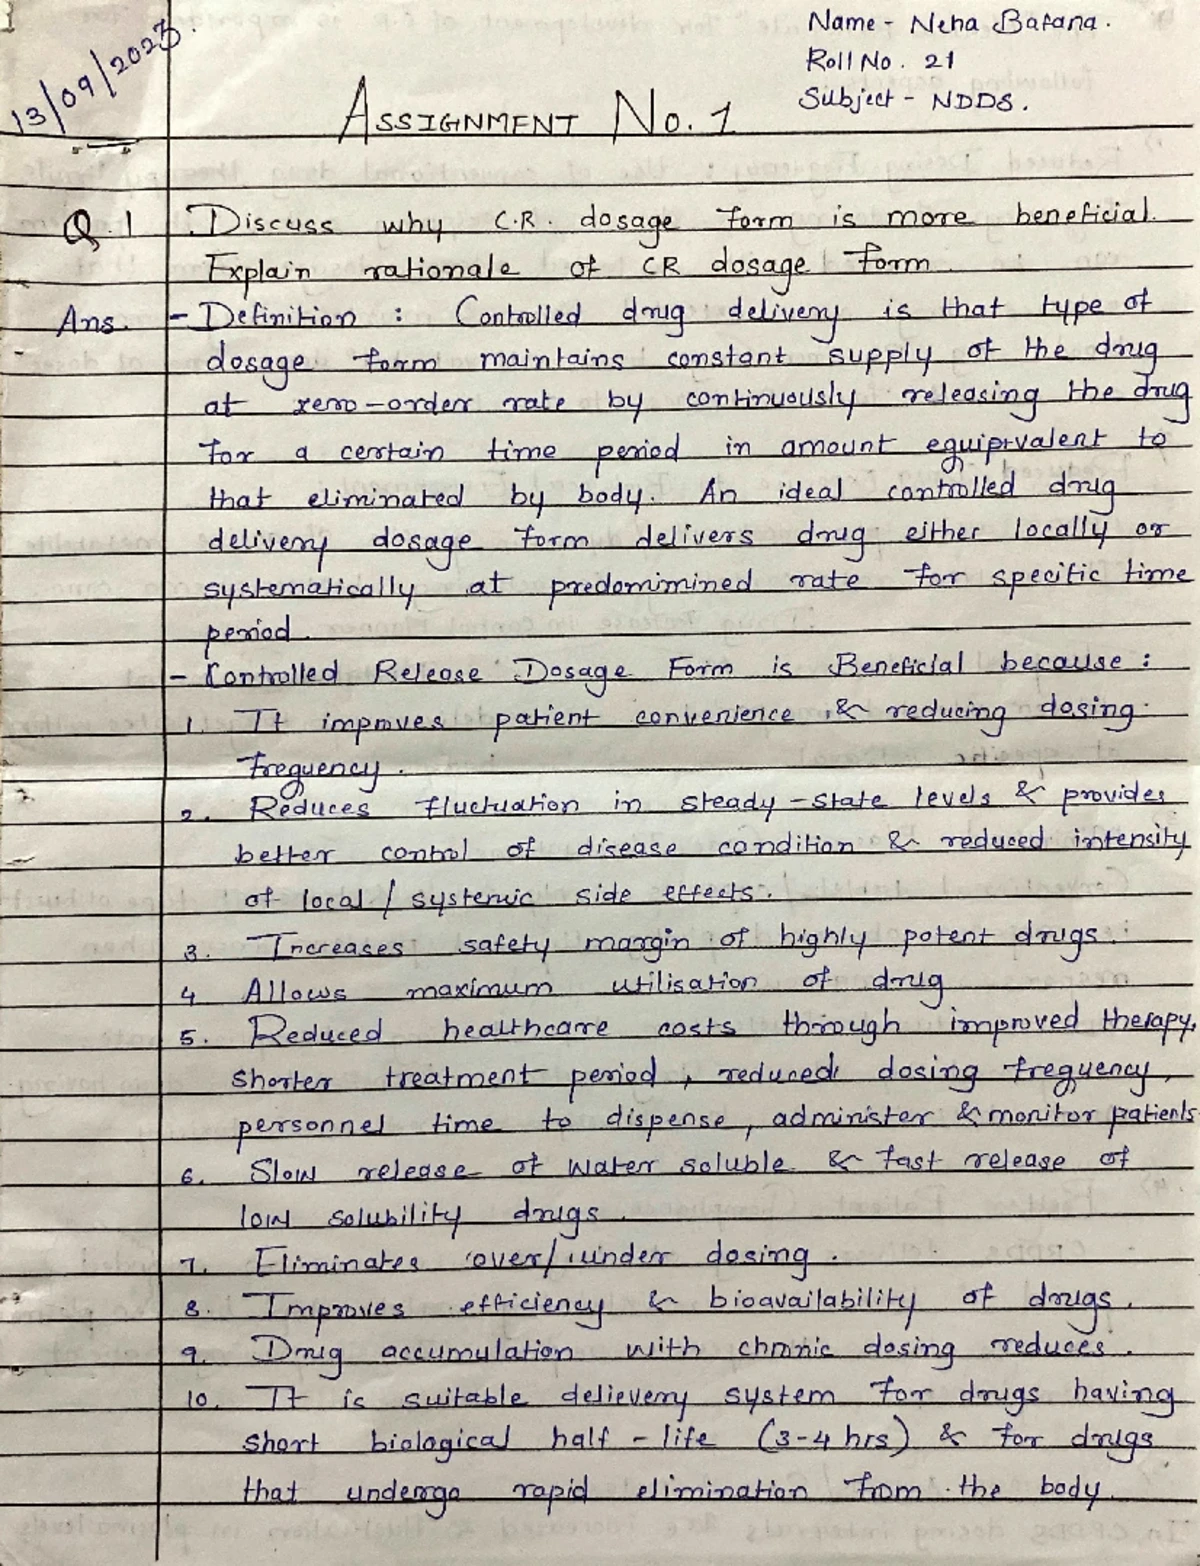 13/09/2023.
Name - Neha Bafana.
Roll No. 21
Subject - NDDS.
ASSIGNMENT No. 1
Q.1 Discuss why C.R. dosage form is more beneficial.
Explain rationale of CR dosage form.
Ans. - Definition : Controlled drug delivery is that type of
dosage form maintains constant supply of the drug
at zero-order rate by continuously releasing the drug
for a certain time period in amount equiprvalent to
that eliminated by body. An ideal controlled drug
delivery dosage form delivers drug either locally or
systematically at predomimined rate for specific time
period.
- Controlled Release Dosage Form is Beneficial because :
1. It improves patient convenience & reducing dosing
frequency.
2. Reduces fluctuation in steady-state levels & provides
better control of disease condition & reduced intensity
of local / systemic side effects.
3. Increases safety margin of highly potent drugs.
4 Allows maximum utilisation of drug
5. Reduced healthcare costs through improved therapy,
shorter treatment period, reduced dosing frequency,
personnel time to dispense, administer & monitor patients
6. Slow release of water soluble & fast release of
low solubility drugs.
7. Eliminates over/under dosing.
8. Improves efficiency & bioavailability of drugs.
9. Drug accumulation with chronic dosing reduces.
10. It is suitable delievery system for drugs having
short biological half-life (3-4 hrs) & for drugs
that undergo rapid elimination from the body.